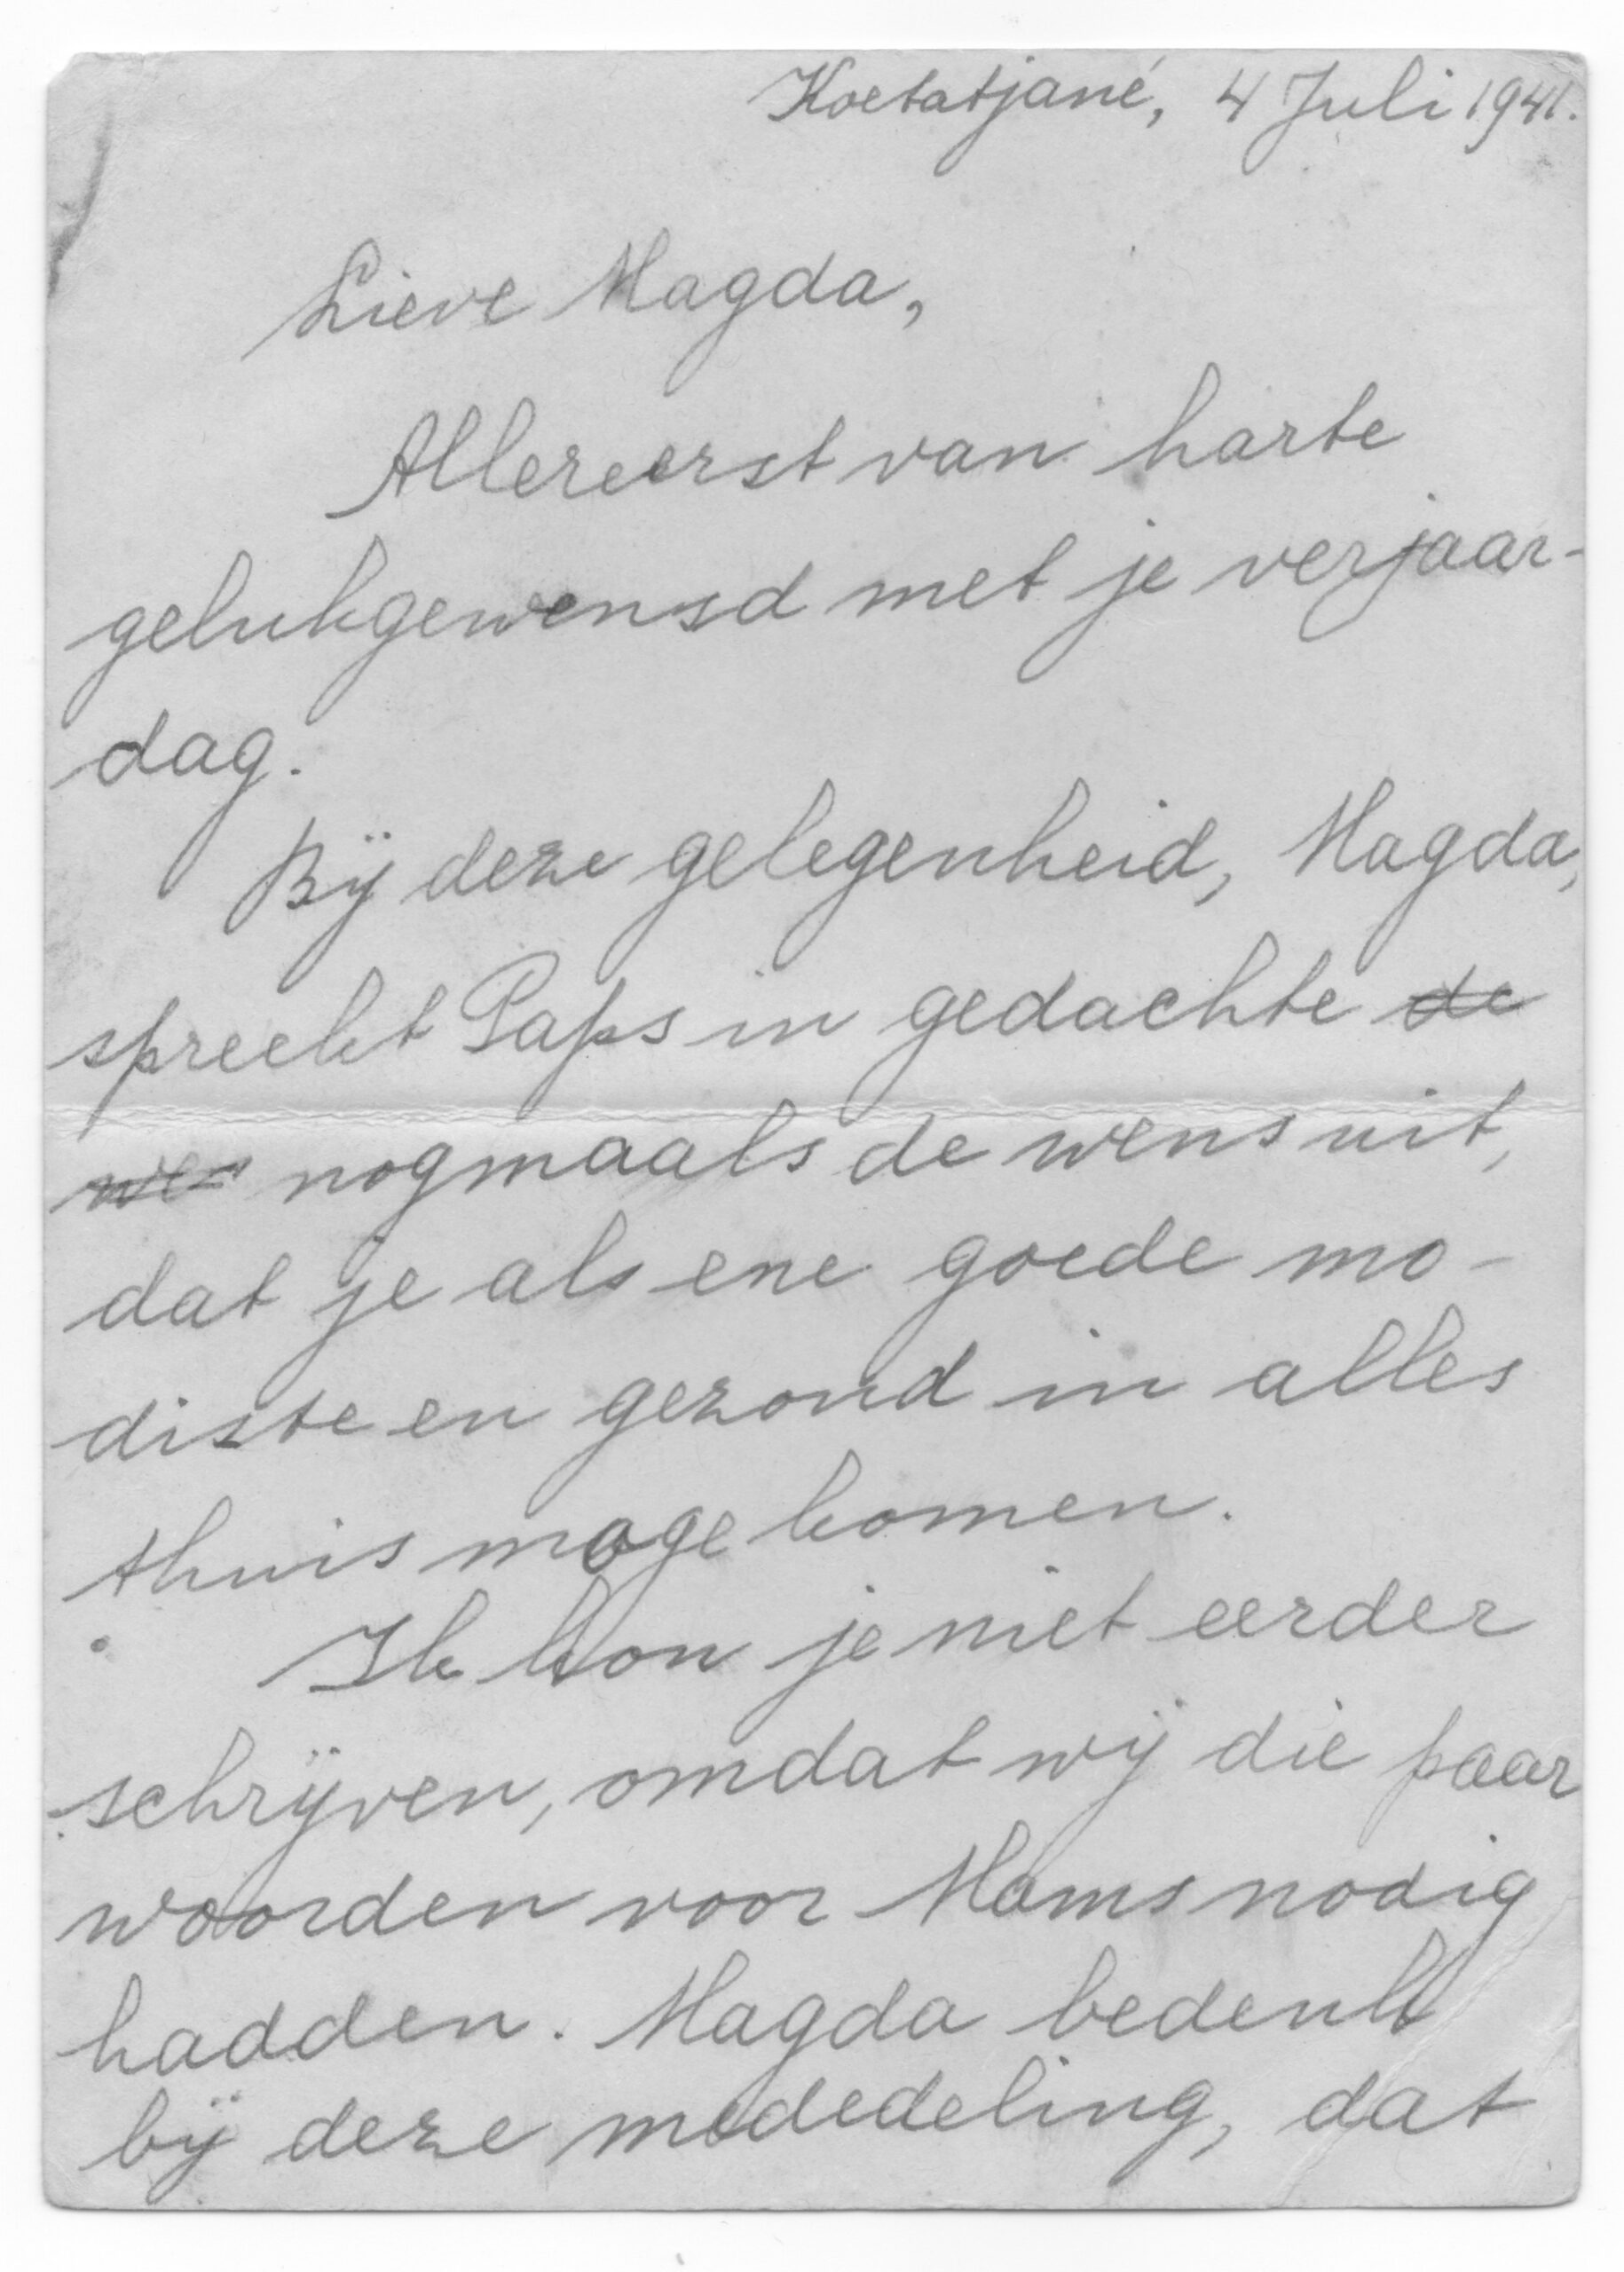 Koetatjané, 4 Juli 1941.
Lieve Magda,
Allereerst van harte
gelukgewensd met je verjaar-
dag.
Bij deze gelegenheid, Magda,
spreekt Paps in gedachte de
wen nogmaals de wens uit,
dat je als ene goede mo-
diste en gezond in alles
thuis moge komen.
Ik kon je niet eerder
schrijven, omdat wij die paar
woorden voor Moms nodig
hadden. Magda bedenk
bij deze mededeling, dat